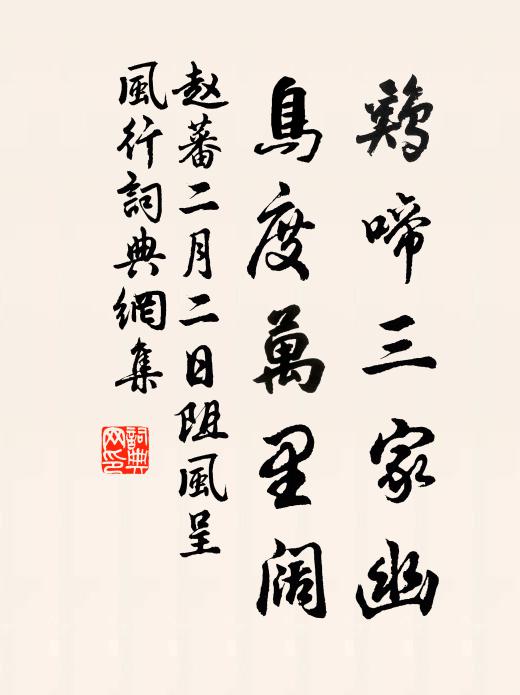 鷄啼三家幽
鳥度萬里阔
赵蕃二月二日阻風呈
風行詞典網集
詞典